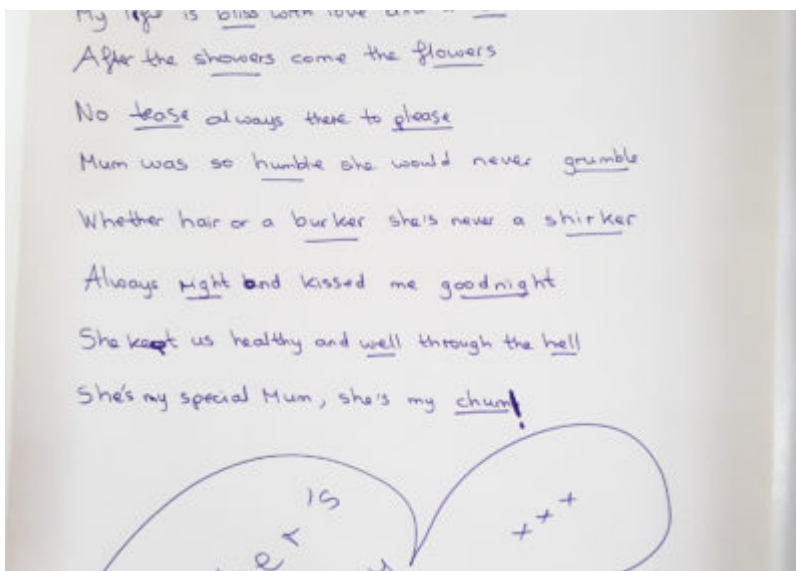 My life is bliss with love and a
After the showers come the flowers
No tease always there to please
Mum was so humble she would never grumble
Whether hair or a burker she's never a shirker
Always right and kissed me goodnight
She kept us healthy and well through the hell
She's my special Mum, she's my chum!
is
+++